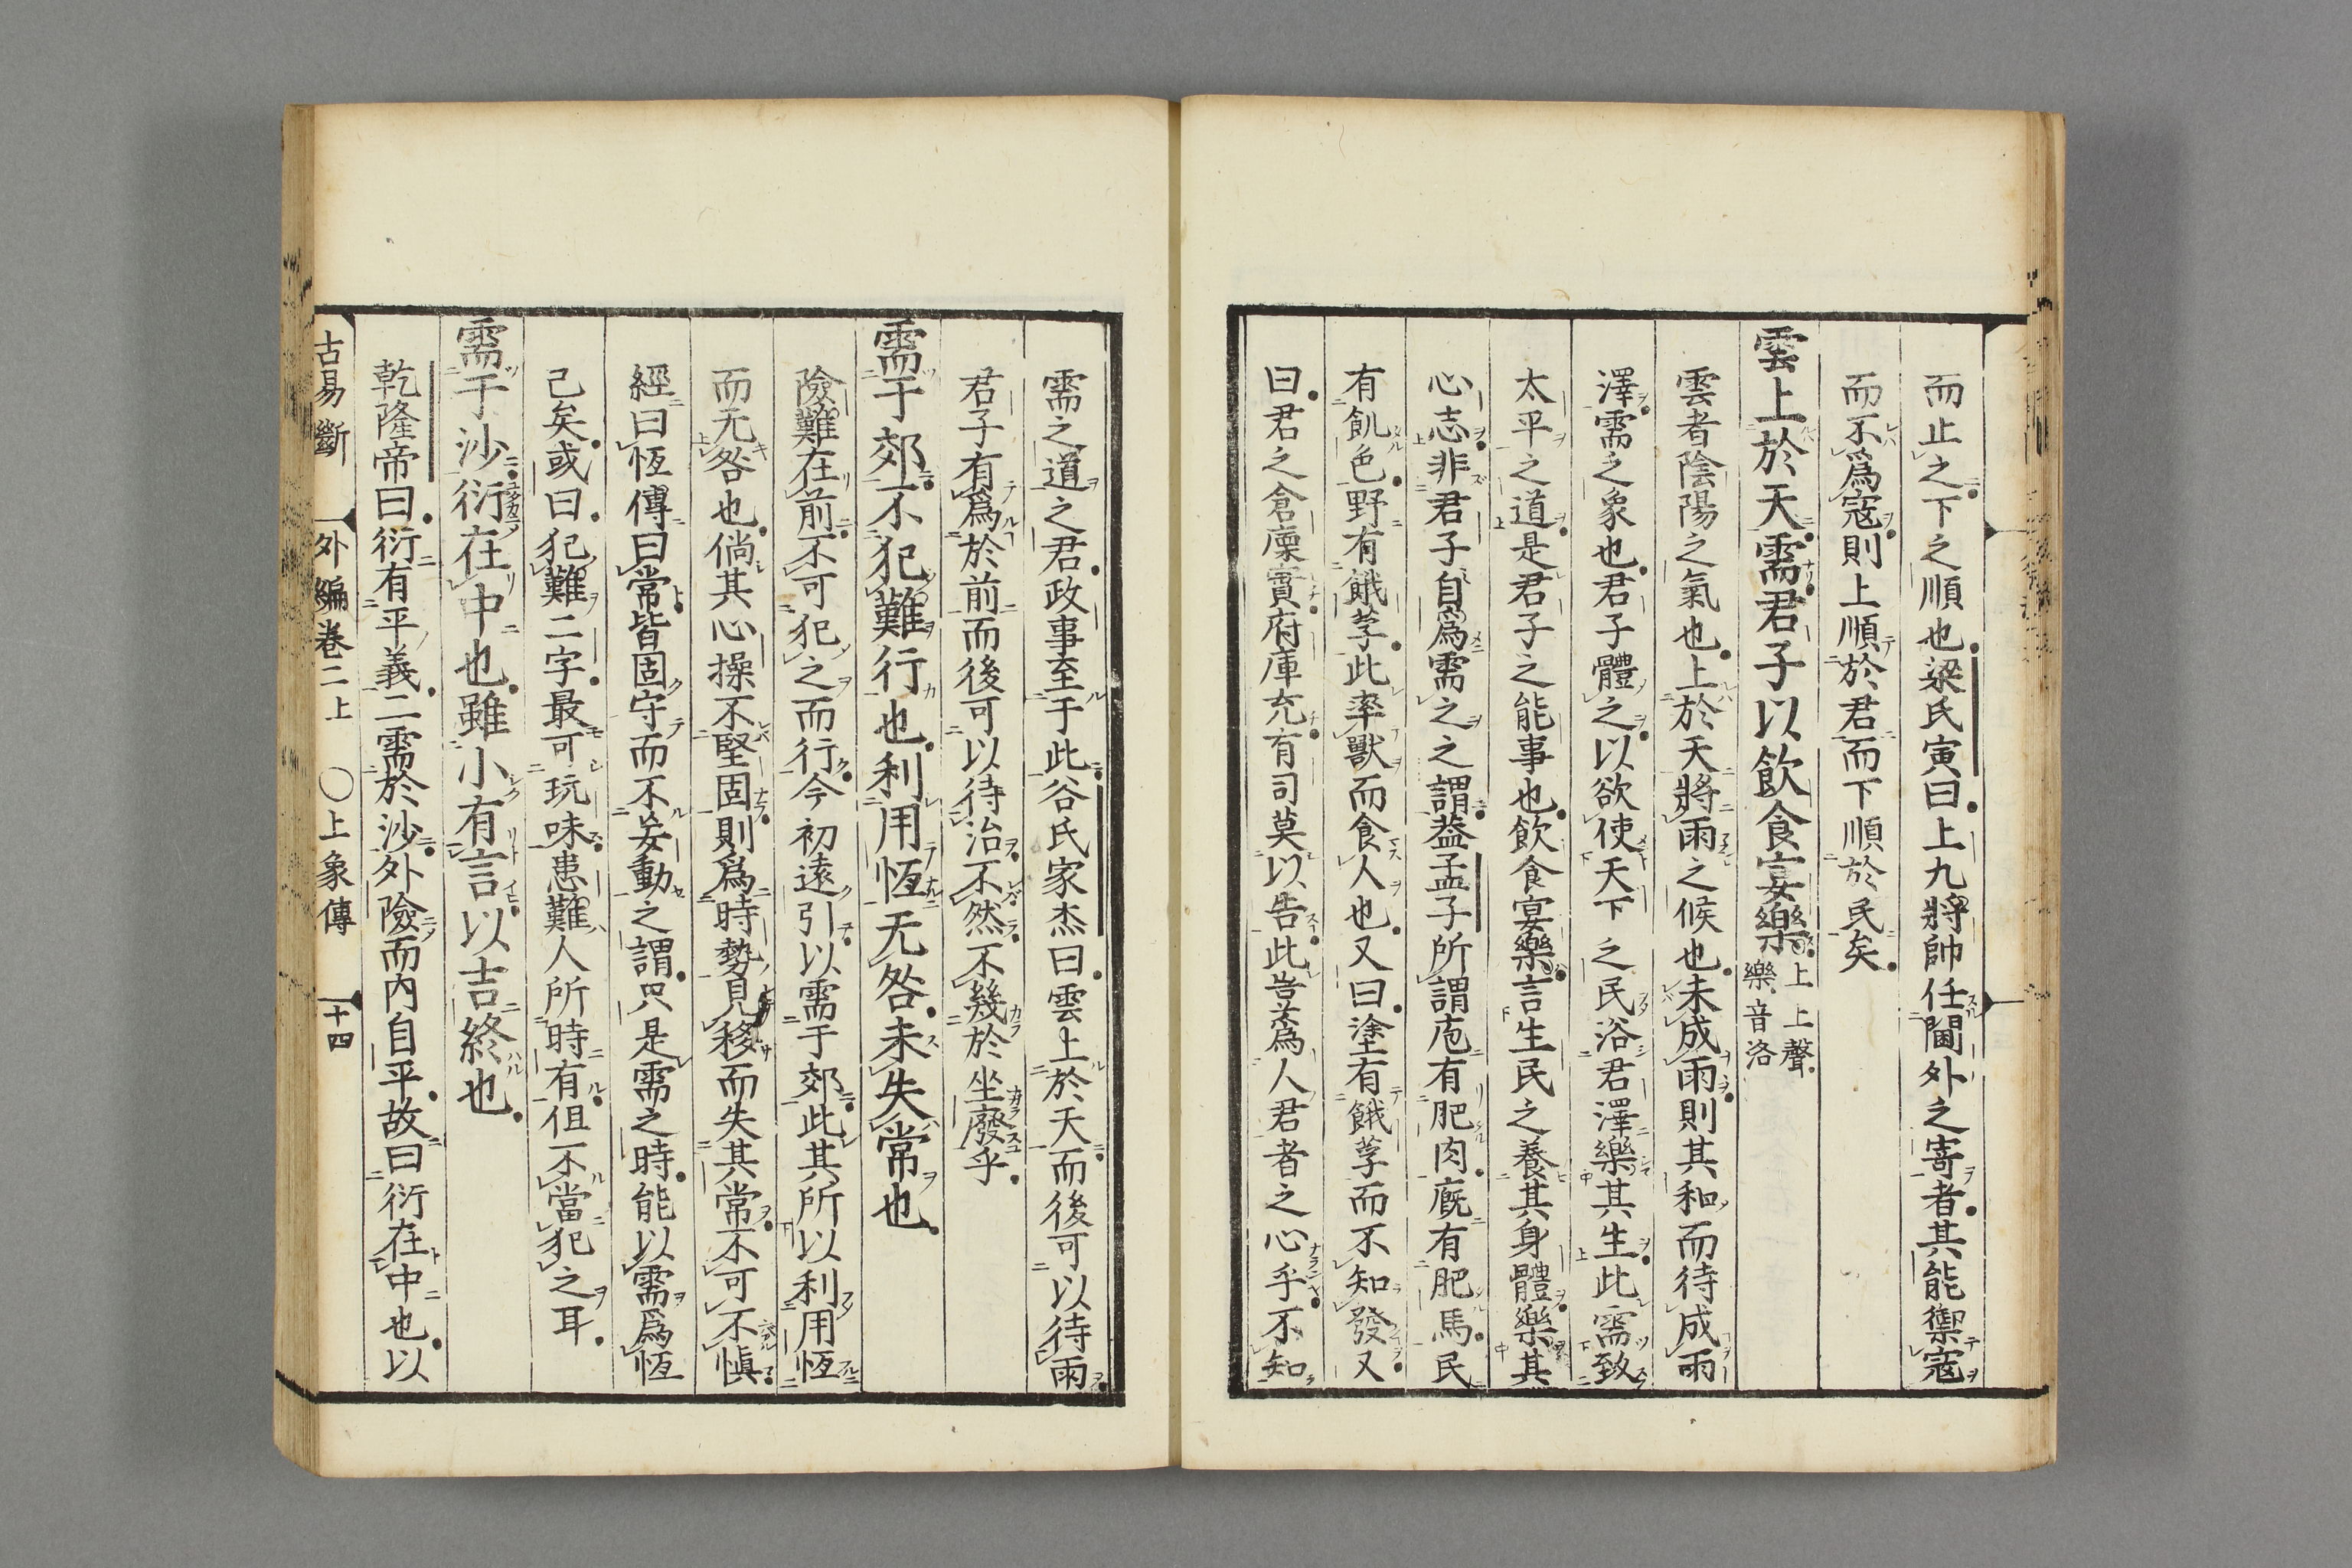 而止之下之順也梁氏寅曰上九將帥任閫外之寄者其能禦寇
而不爲寇則上順於君而下順於民矣
雲上於天需君子以飮食宴樂上上聲樂音洛
雲者陰陽之氣也上於天將雨之候也未成雨則其和而待成雨
澤需之象也君子體之以欲使天下之民浴君澤樂其生此需致
太平之道是君子之能事也飮食宴樂言生民之養其身體樂其
心志非君子自爲需之之謂葢孟子所謂庖有肥肉廐有肥馬民
有飢色野有餓莩此率獸而食人也又曰塗有餓莩而不知發又
曰君之倉廩實府庫充有司莫以告此豈爲人君者之心乎不知
需之道之君政事至于此谷氏家杰曰雲上於天而後可以待雨
君子有爲於前而後可以待治不然不幾於坐廢乎
需于郊不犯難行也利用恆无咎未失常也
險難在前不可犯之而行今初遠引以需于郊此其所以利用恆
而无咎也倘其心操不堅固則爲時勢見移而失其常不可不愼
經曰恆傳曰常皆固守而不妄動之謂只是需之時能以需爲恆
己矣或曰犯難二字最可玩味患難人所時有但不當犯之耳
需于沙衍在中也雖小有言以吉終也
乾隆帝曰衍有平義二需於沙外險而内自平故曰衍在中也以
古易斷 外編卷二上 〇上象傳 十四